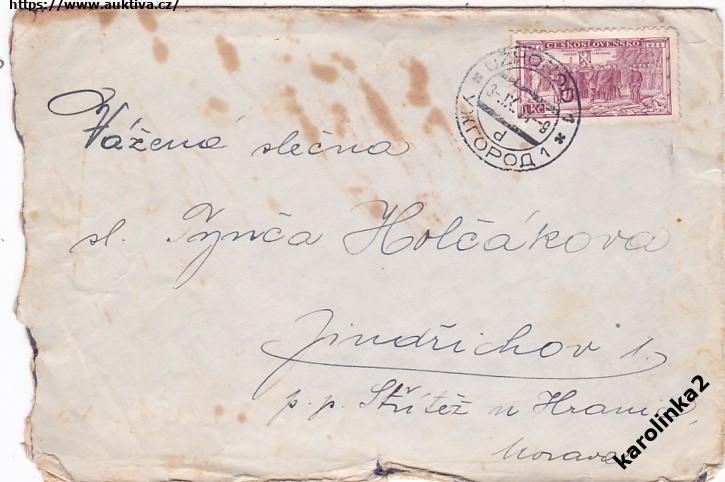 https://www.auktiva.cz/
ČESKOSLOVENSKO
1 Kč
UŽHOROD 1
УЖГОРОД 1
d
Vážená slečna
sl. Holčákova
Jindřichov 1.
p. p. Střítež u Hranic
Morava
karolinka2